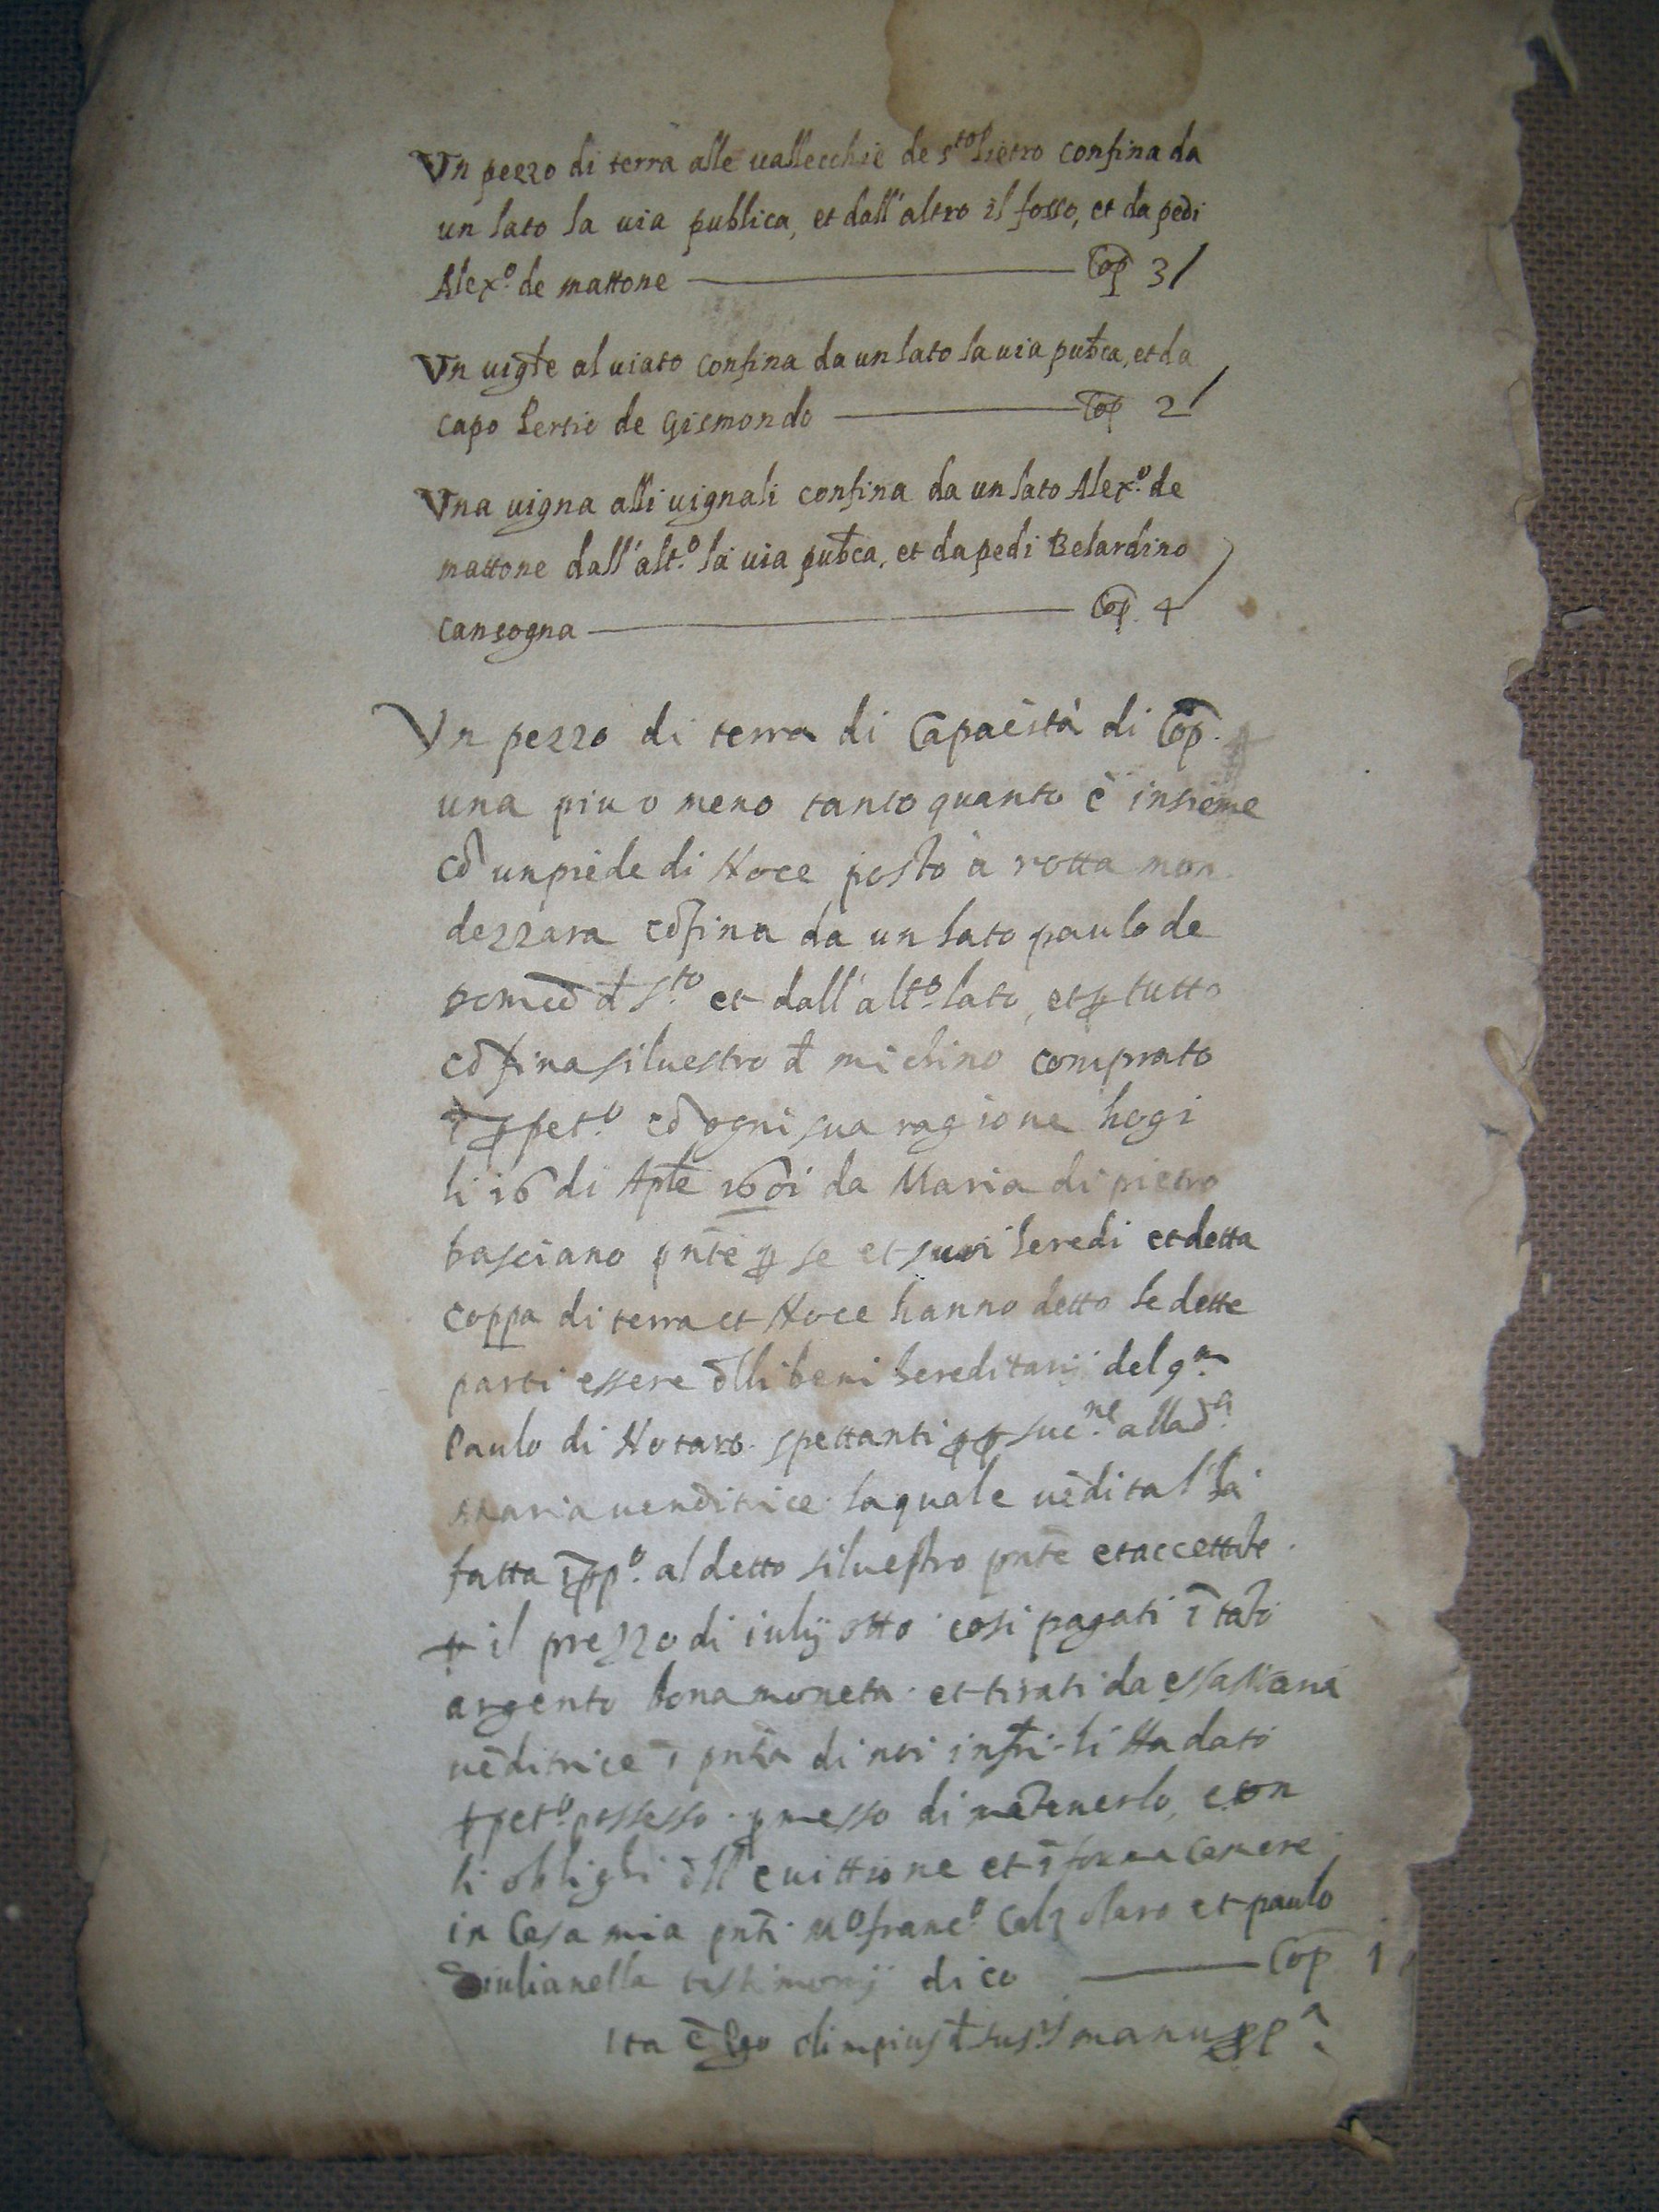 Vn pezzo di terra alle uallecchie de s.to Pietro confina da
un lato la uia publica, et dall'altro il fosso, et da pedi
Alex.o de mattone Cop 3/
Vn uigle al uiato confina da un lato la uia pubca, et da
capo Pertio de Gismondo Cop 2/
Vna uigna alli uignali confina da un lato Alex.o de
mattone dall'alt.o la uia pubca, et da pedi Belardino
cansogna Cop. 4
Vn pezzo di terra di Capacità di Cop.
una piu o meno tanto quanto è insieme
cō un piede di Noce posto à rotta mon
dezzara cōfina da un lato paulo de
s.to et dall'alt.o lato, et ꝑ tutto
cōfina siluestro đ michino comprato
ī ꝑpet.o cō ogni sua ragione hogi
li 16 di Aple 1601 da Maria di pietro
basciano pnte ꝑ se et suoi heredi et detta
coppa di terra et Noce hanno detto le dette
parti essere đlli beni hereditarij del q.m
Paulo di Notaro spettanti ꝑ suc.ne alla d.a
Maria uenditrice laquale uēdita l'ha
fatta ī ꝑp.o al detto siluestro pnte et accettāte
ꝑ il prezzo di iulij otto cosi pagati ī tāto
argento bona moneta et tirati da essa Maria
uēditrice ī pntia di noi infri li Ha dato
ꝑpet.o possesso ꝓmesso di mātenerlo, con
li oblighi đll'euittione et ī forma Camere
in Casa mia pnti M.o franc.o Calzolaro et paulo
Giulianella testimonij dico Cop 1
Ita ē Ego olimpius manu ꝓp.a